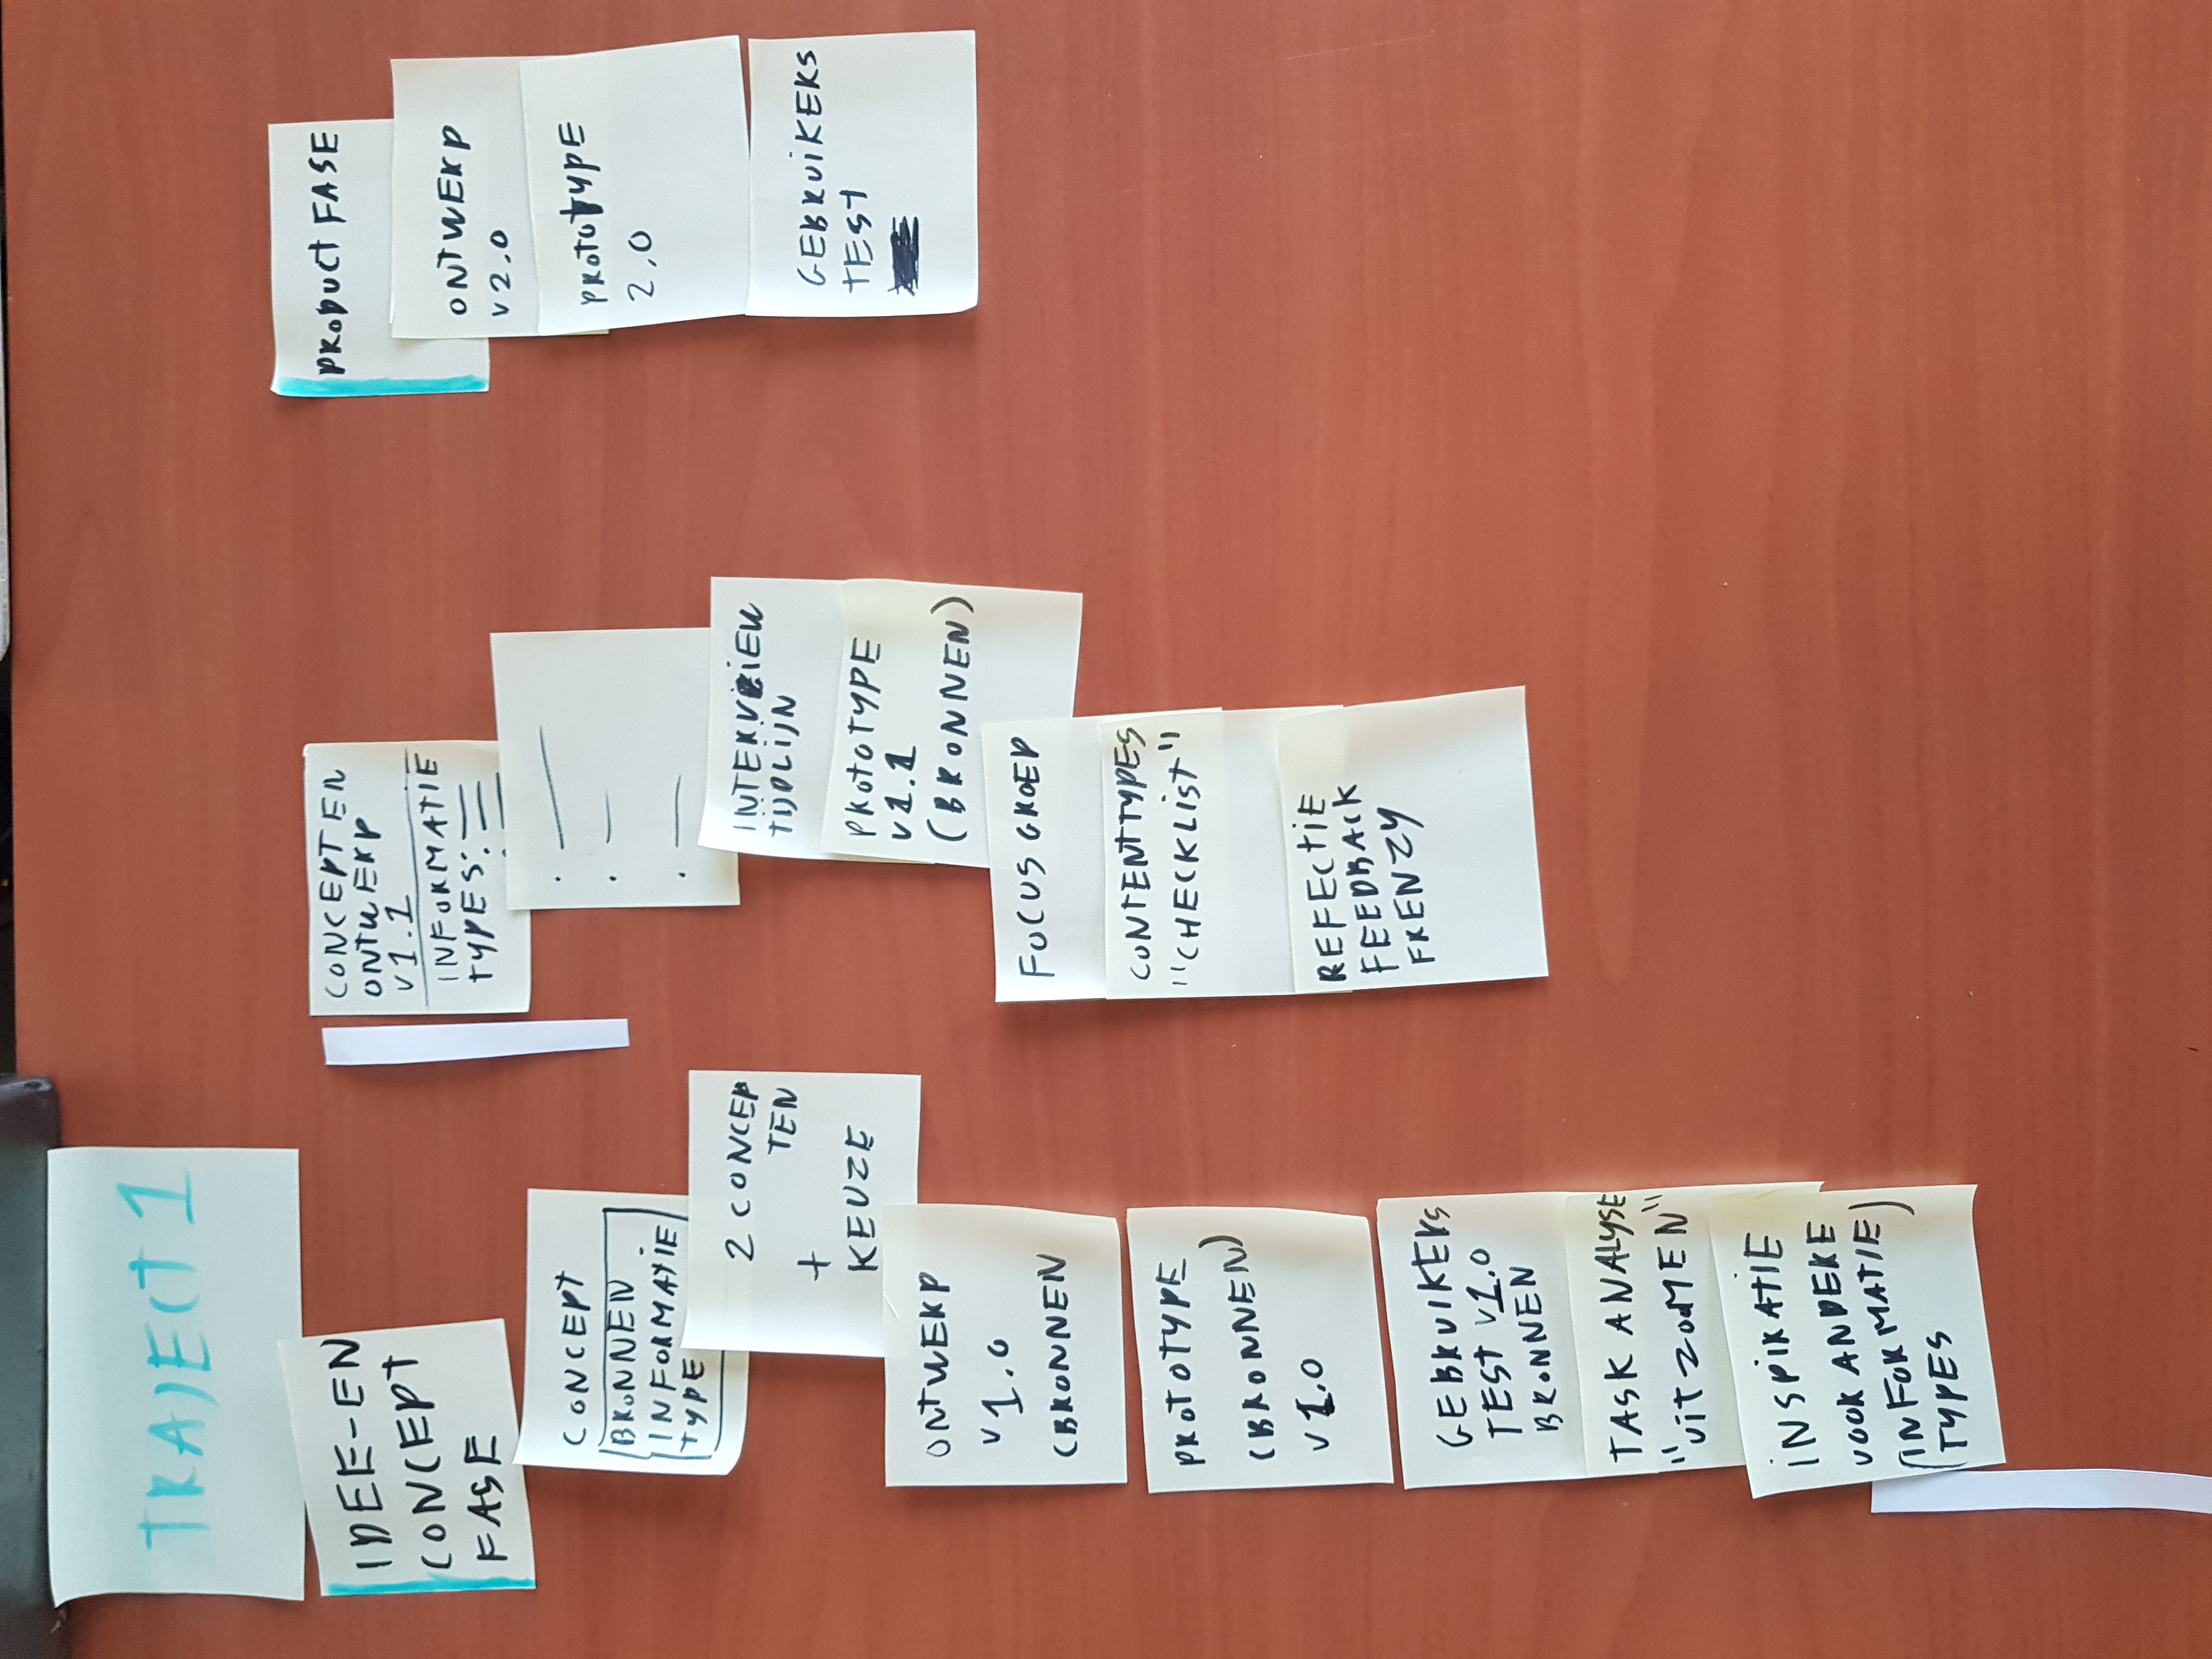 TRAJECT 1
IDEE-EN
CONCEPT
FASE
CONCEPT
BRONNEN
INFORMATIE
TYPE
2 CONCEP
TEN
+
KEUZE
ONTWERP
v 1.0
(BRONNEN
PROTOTYPE
(BRONNEN)
v 1.0
GEBRUIKERS
TEST v1.0
BRONNEN
TASK ANALYSE
"UITZOOMEN"
INSPIRATIE
VOOR ANDERE
(INFORMATIE)
TYPES
CONCEPT EN
ONTWERP
v1.1
INFORMATIE
TYPES:
INTERVIEW
TIJDLIJN
PROTOTYPE
v1.1
(BRONNEN)
FOCUS GROEP
CONTENTTYPES
"CHECKLIST"
REFECTIE
FEEDBACK
FRENZY
PRODUCT FASE
ONTWERP
v2.0
PROTOTYPE
2,0
GEBRUIKERS
TEST